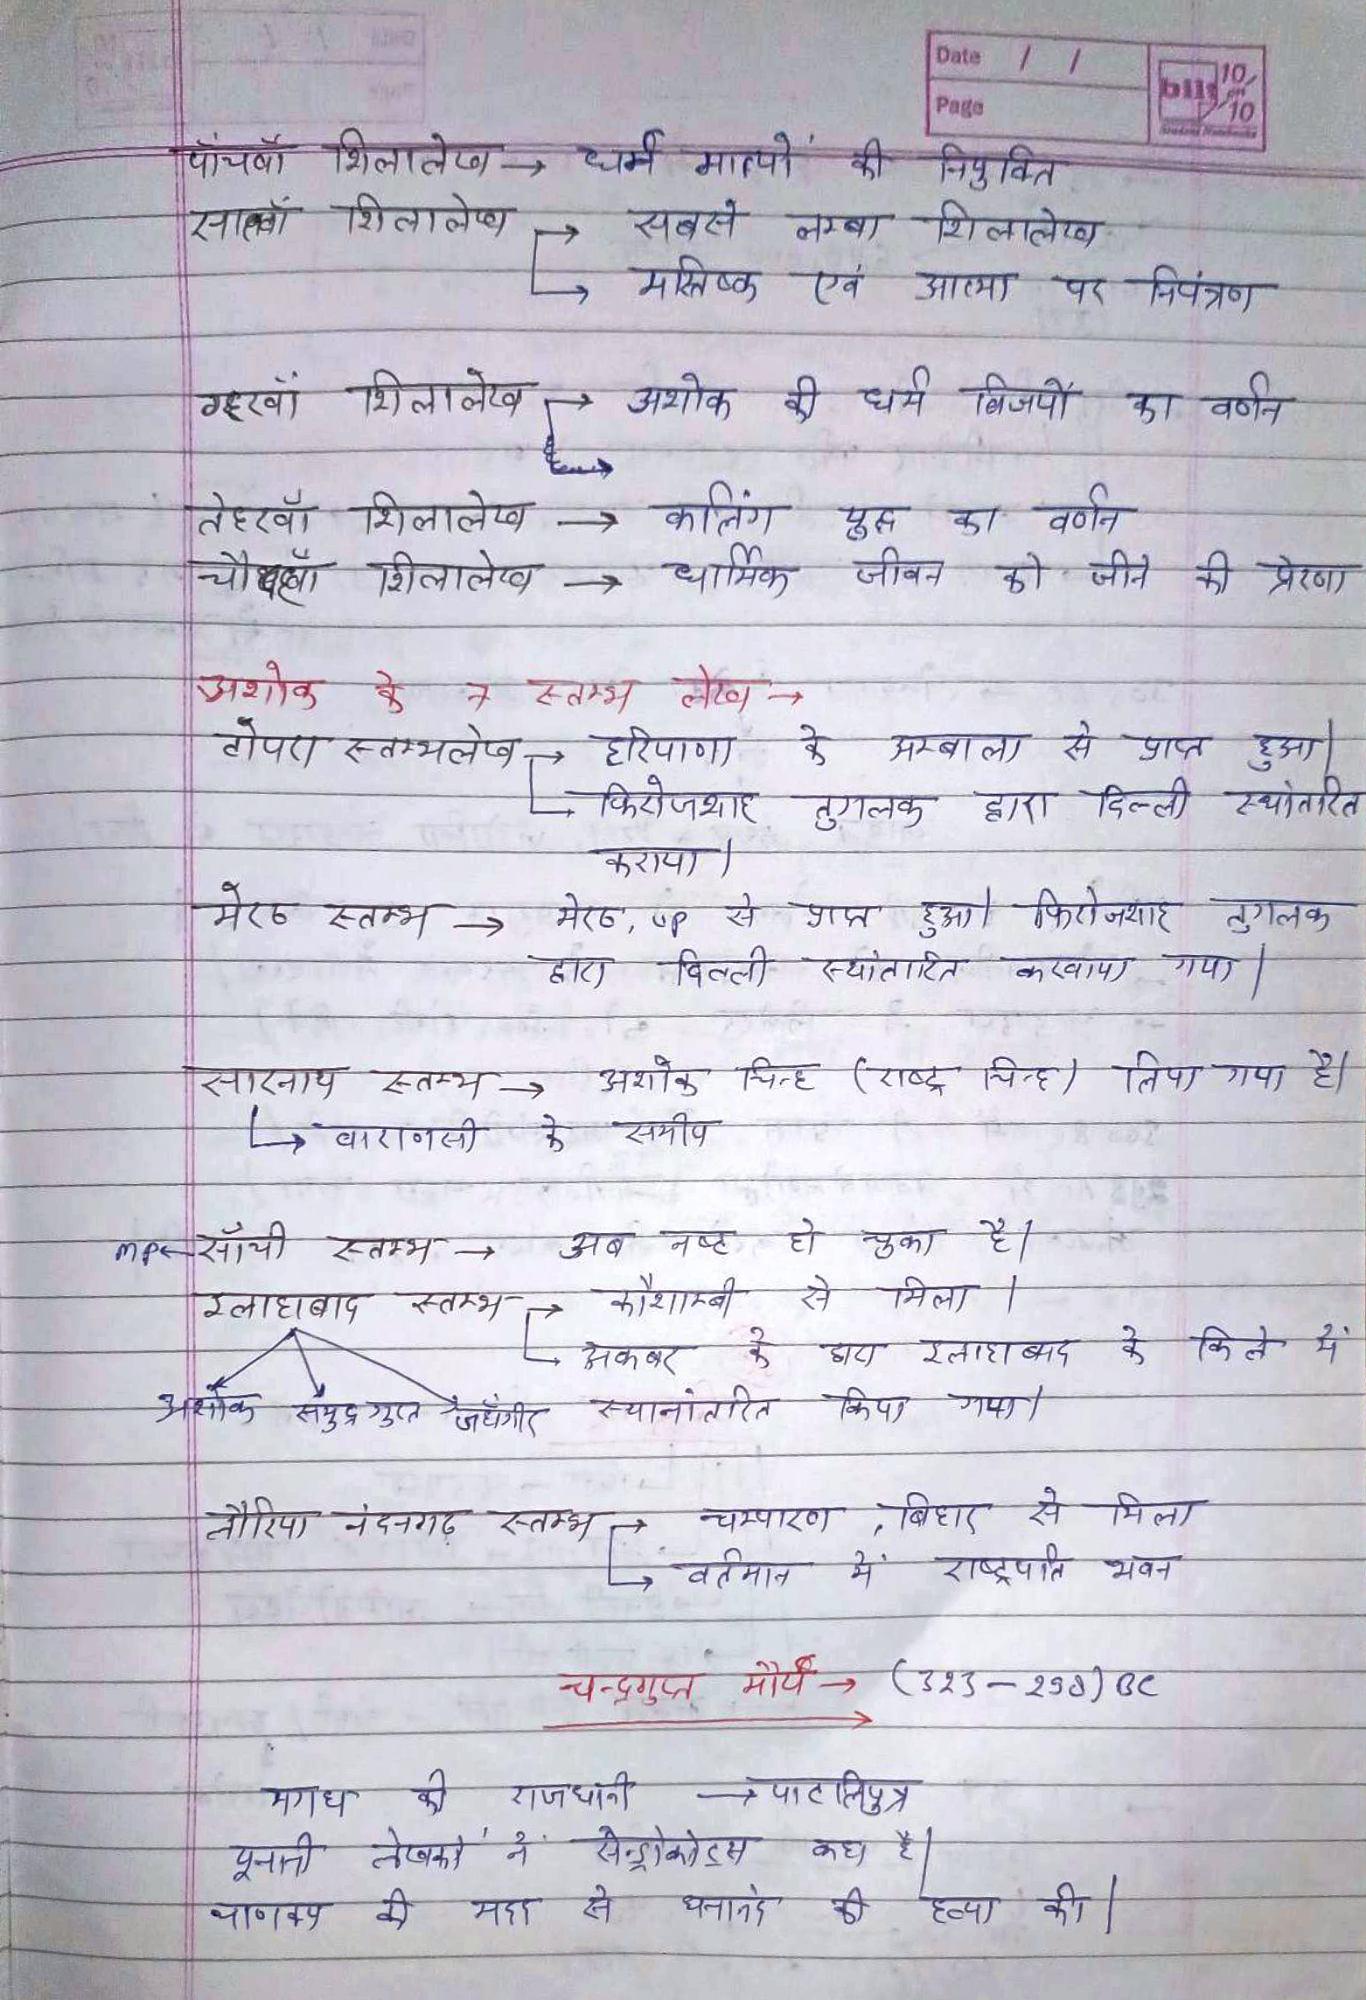 Date / /
Page
10 on 10
पाँचवाँ शिलालेख → धर्म मात्यों की नियुक्ति
सातवाँ शिलालेख → सबसे लम्बा शिलालेख
→ मस्तिष्क एवं आत्मा पर नियंत्रण
शिलालेख → अशोक की धर्म विजयों का वर्णन
तेहरवाँ शिलालेख → कलिंग युद्ध का वर्णन
चौदहवाँ शिलालेख → धार्मिक जीवन को जीने की प्रेरणा
अशोक के 7 स्तम्भ लेख →
टोपरा स्तम्भलेख → हरियाणा के अम्बाला से प्राप्त हुआ।
→ फिरोजशाह तुगलक द्वारा दिल्ली स्थांतरित
कराया।
मेरठ स्तम्भ → मेरठ, UP से प्राप्त हुआ। फिरोजशाह तुगलक
द्वारा दिल्ली स्थांतरित करवाया गया।
सारनाथ स्तम्भ → अशोक चिन्ह (राष्ट्र चिन्ह) लिया गया है।
→ वाराणसी के समीप
MP ← साँची स्तम्भ → अब नष्ट हो चुका है।
इलाहाबाद स्तम्भ → कौशाम्बी से मिला।
→ अकबर के द्वारा इलाहाबाद के किले में
अशोक समुद्रगुप्त जहाँगीर स्थानांतरित किया गया।
लौरिया नंदनगढ़ स्तम्भ → चम्पारण, बिहार से मिला
→ वर्तमान में राष्ट्रपति भवन
चन्द्रगुप्त मौर्य → (323-298) BC
मगध की राजधानी → पाटलिपुत्र
यूनानी लेखकों ने सेन्ड्रोकोट्स कहा है।
चाणक्य की मदद से धनानंद की हत्या की।